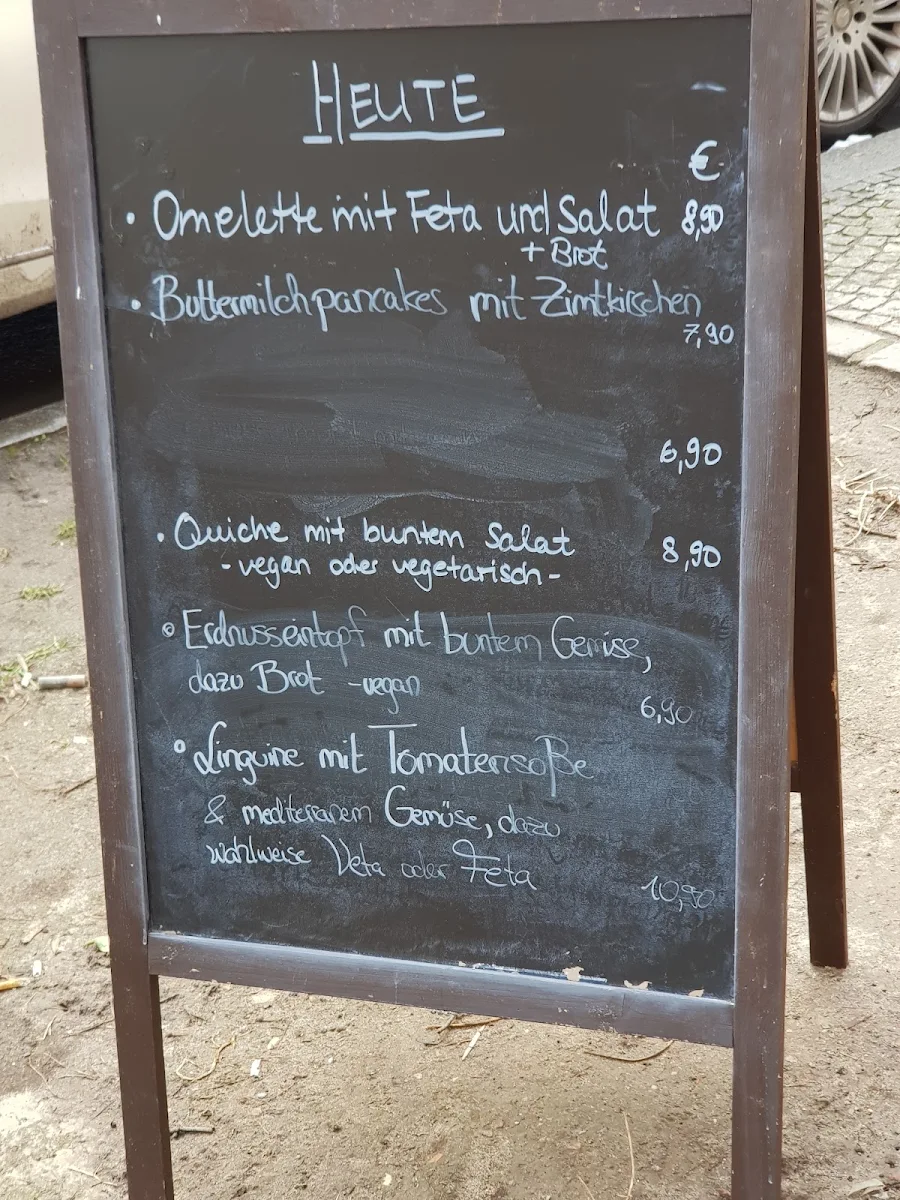 HEUTE
€
• Omelette mit Feta und Salat 8,90
+ Brot
• Buttermilchpancakes mit Zimtkirschen
7,90
6,90
• Quiche mit buntem Salat 8,90
- vegan oder vegetarisch -
• Erdnusseintopf mit buntem Gemüse,
dazu Brot - vegan
6,90
• Linguine mit Tomatensoße
& mediterranem Gemüse, dazu
wahlweise Veta oder Feta
10,90